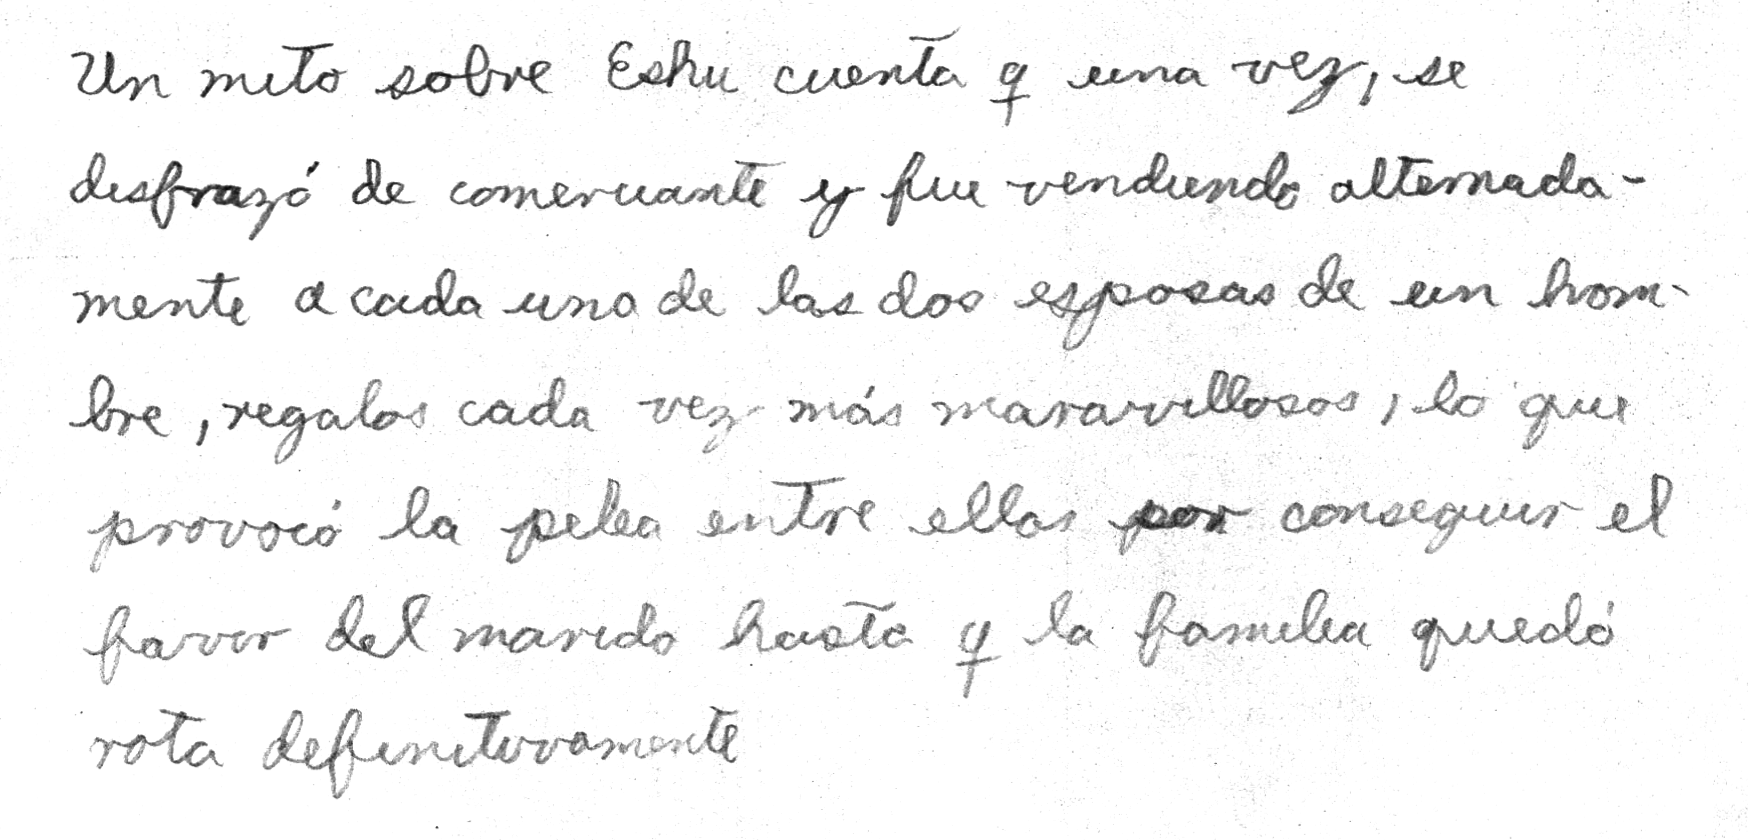 Un mito sobre Eshu cuenta q una vez, se
disfrazó de comerciante y fue vendiendo alternada-
mente a cada una de las dos esposas de un hom-
bre, regalos cada vez más maravillosos, lo que
provocó la pelea entre ellas por conseguir el
favor del marido hasta q la familia quedó
rota definitivamente